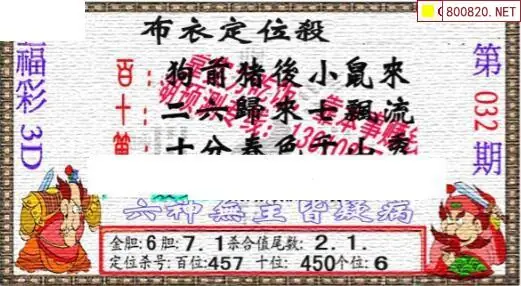 800820.NET
布衣定位殺
福彩3D
第032期
百：狗前豬後小鼠來
十：二六歸來七飄流
十分春色千山秀
六神無主皆疑病
金胆: 6 胆: 7. 1 杀合值尾数: 2. 1.
定位杀号: 百位: 457 十位: 450 个位: 6